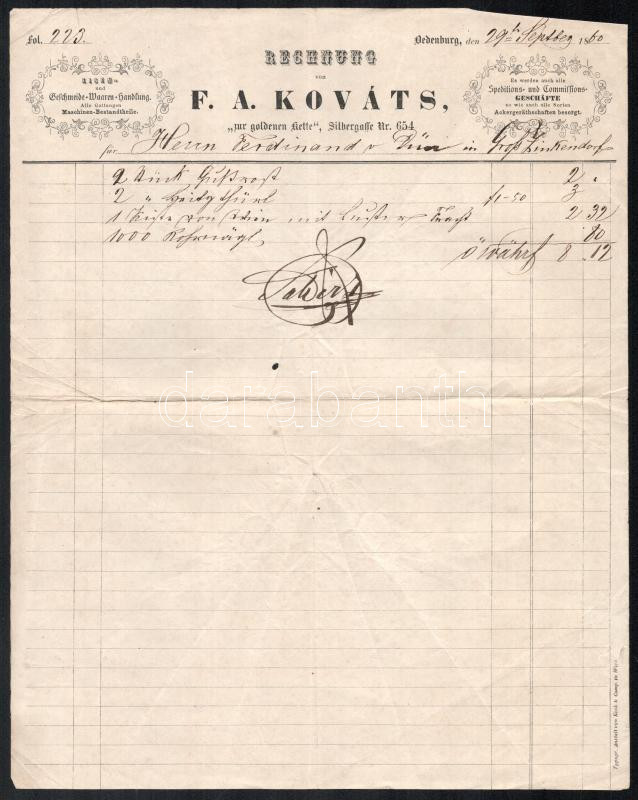 Fol. 223.
Oedenburg, den 29t Septber 1860
RECHNUNG
von
F. A. KOVÁTS,
„zur goldenen Kette“, Silbergasse Nr. 654
EISEN-
und
Geschmeide-Waaren-Handlung.
Alle Gattungen
Maschinen-Bestandtheile.
Es werden auch alle
Speditions- und Commissions-
GESCHÄFTE
so wie auch alle Sorten
Ackergeräthschaften besorgt.
für Herrn Ferdinand v in Groß Zinkendorf
2 Stück Gußrost 2 .
2 " Heitzthürl f1-50 3
1 Kiste von Wien mit Luster 2 32
1000 Rohrnägl . 80
Ö Währf 8 .12
darabanth